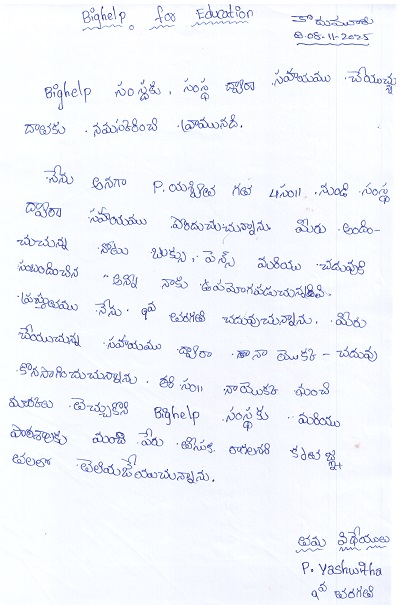 Bighelp for Education
తాడుమువాడు
ది.05-11-2025
Bighelp సంస్థకు, సంస్థ ద్వారా సహాయము చేయుచ్చు
దాతకు నమస్కరించి వ్రాయునది.
నేను అనగా P.యశ్విత గత 4సం౹౹ నుండి సంస్థ
ద్వారా సహాయము పొందుచున్నాను మీరు అందిం-
చుచున్న నోటు బుక్కు, పెన్స్ మరియు చదువుకి
సంబందించిన అన్ని నాకు ఉపయోగపడుచున్నవి.
ప్రస్తుతము నేను 9వ తరగతి చదువుచున్నాను. మీరు
చేయుచున్న సహాయము ద్వారా నా యొక్క చదువు
కొనసాగించుచున్నాను. ఈ సం౹౹ నా యొక్క మంచి
మార్కులు తెచ్చుకొని Bighelp సంస్థకు మరియు
పాఠశాలకు మంచి పేరు తీసుకు రాగలనని కృతజ్ఞ
తలతో తెలియజేయుచున్నాను.
తమ విధేయులు
P. Yashwitha
9వ తరగతి